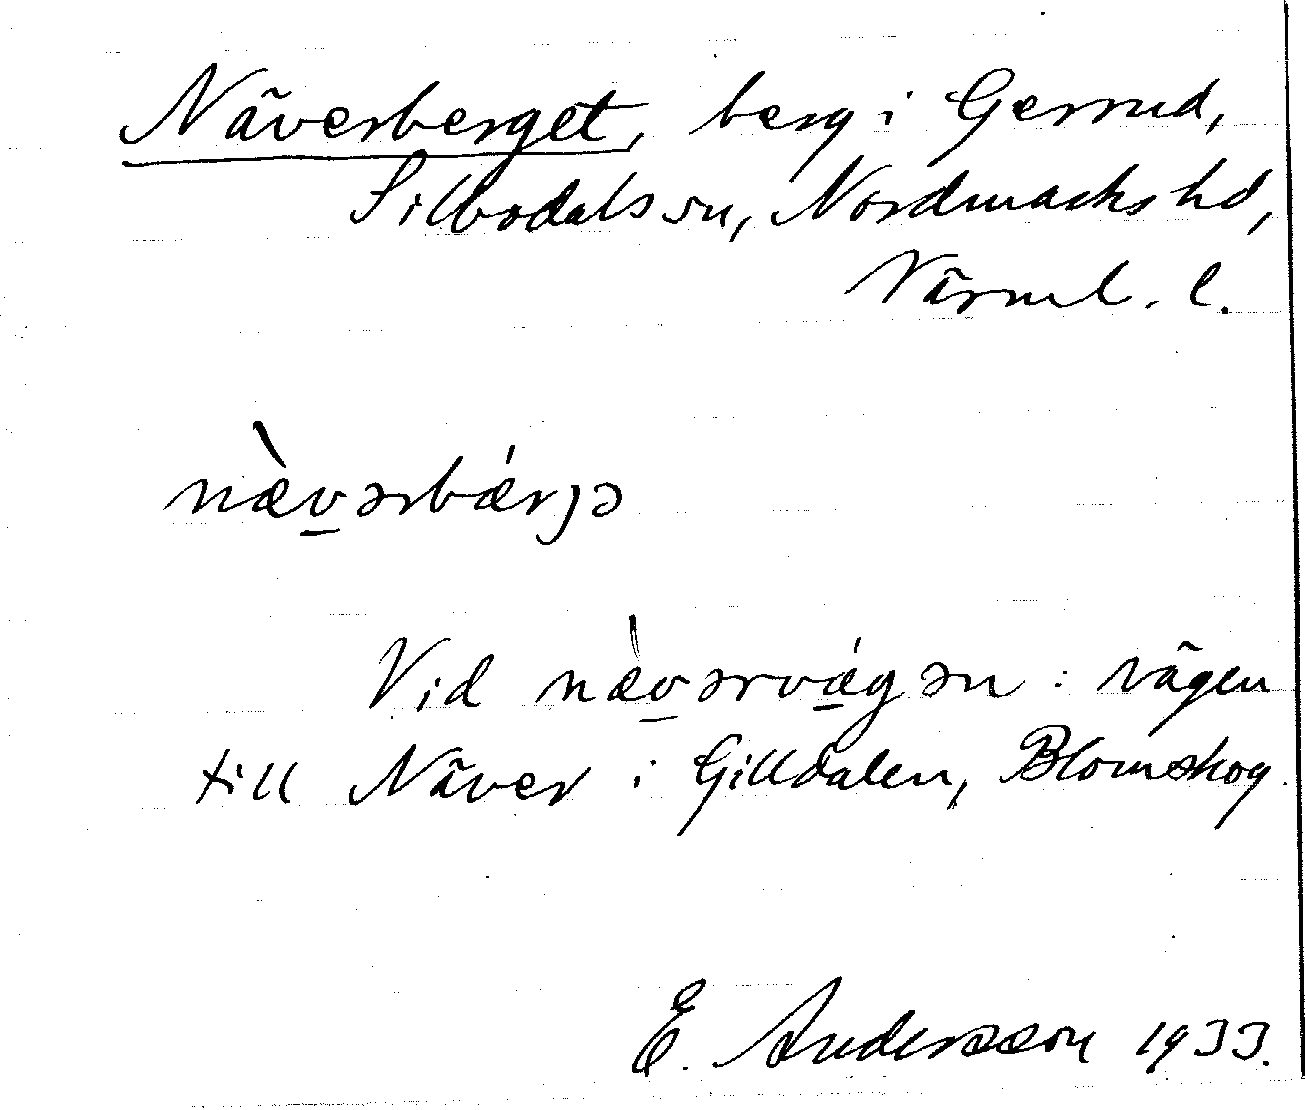 Näverberget, berg i Gerrud,
Silbodals sn, Nordmarks hd,
Värml. l.
næ̀v̲ərbǽrjə
Vid næ̀v̲ərvǽ̲gən : vägen
till Näver i Gilldalen, Blomskog.
E. Andersson 1933.